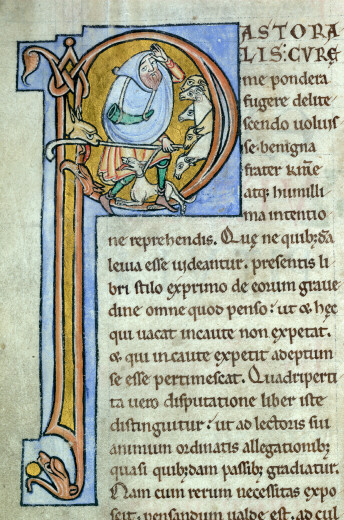 PASTORA
LIS: CURĘ
me pondera
fugere delite
scendo uoluis
se. benigna
frater kr̄me
atq; humilli
ma intentio
ne reprehendis. Quę ne quib;dā
leuia esse uideantur. presentis li
bri stilo exprimo de eorum graue
dine omne quod penso: ut & hęc
qui uacat incaute non expetat.
& qui incaute expetit adeptum
se esse pertimescat. Quadriperti
ta uero disputatione liber iste
distinguitur: ut ad lectoris sui
animum ordinatis allegationib;
quasi quib;dam passib; gradiatur.
Nam cum rerum necessitas expo
scit. pensandum ualde est. ad cul